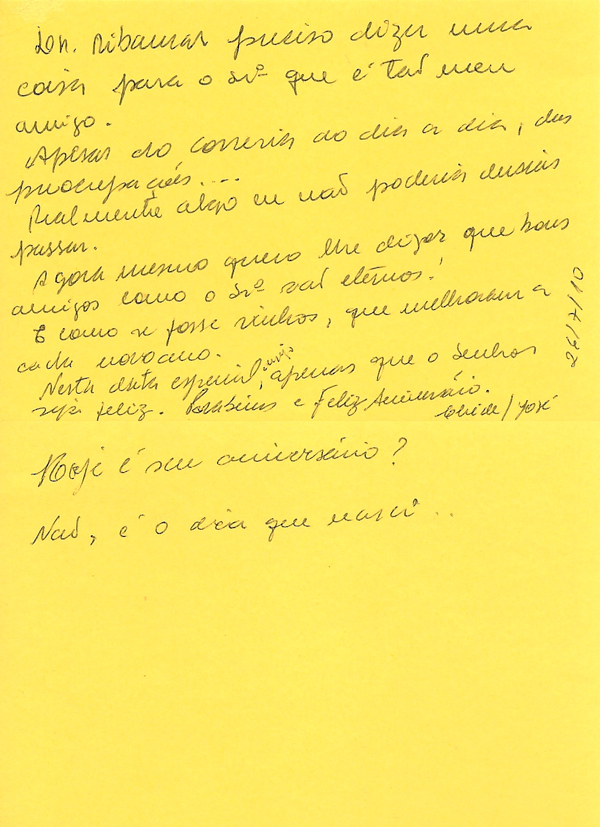 Dr. Ribamar preciso dizer uma
coisa para o Srº que é tão meu
amigo.
Apesar do correria do dia a dia, das
preocupações....
Realmente algo eu não poderia deixar
passar.
Agora mesmo quero lhe dizer que bons
amigos como o Srº são eternos!
É como se fosse vinhos, que melhoram a
cada novo ano.
Nesta data especial desejo, apenas que o Senhor
seja feliz. Parabéns e Feliz Aniversário.
/ José
26/7/10
Hoje é seu aniversário?
Não, é o dia que nasci...